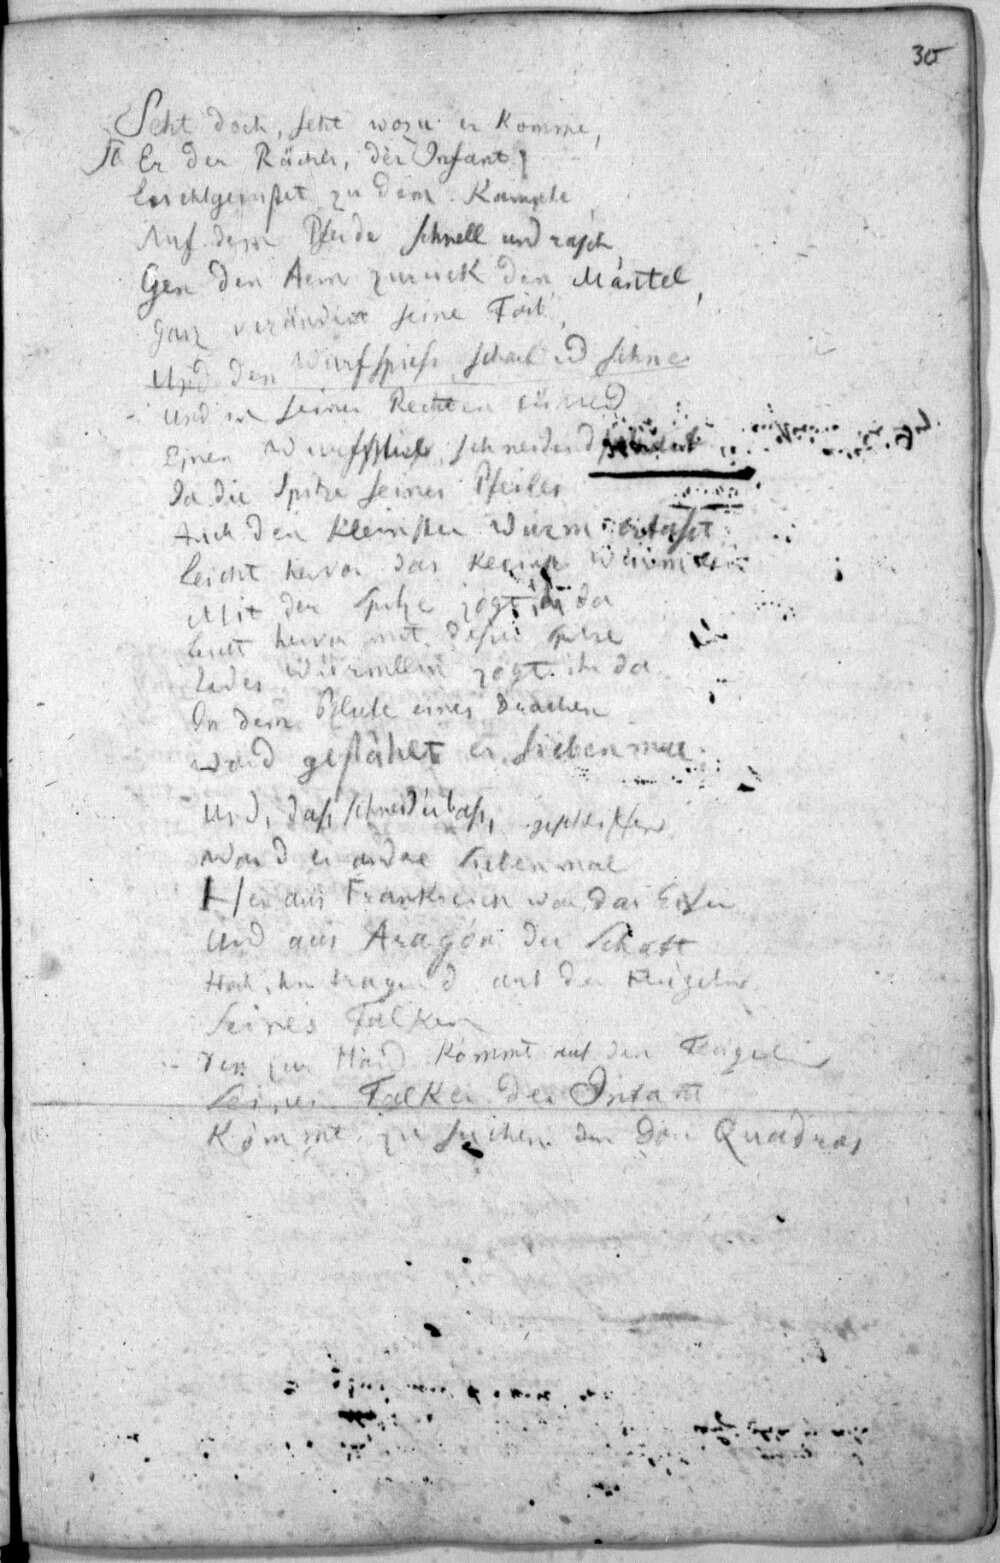 30
Seht doch, seht wozu er komme,
Er der Rächer, der Infant
Leichtgerüstet zu dem Kampfe
Auf dem Pferde schnell und rasch,
Gen den Arm zurück den Mantel,
Ganz verändert seine Farb,
Und den Wurfspiess scharf und
Und in seiner Rechten
Einen Wurfspiess, schneidend
Da die Spitze seines Pfeiles
Auch den kleinsten Wurm
Leicht hervor das Würmlein
Mit der Spitze zögt da
Leicht hervor mit Spitze
Jedes Würmlein zögt ihr da
In dem Blute eines Drachen
Ward gestählet er siebenmal.
Und, dass schneid'bass, geschliffen
Ward er andre siebenmal
aus Frankreich war das Eisen
Und aus Aragon der Schaft
tragend auf den Flügeln
Seines Falken
zur Hand kommt auf den Flügeln
Seines Falken der Infant
Kömmt zu suchen den Don Quadros